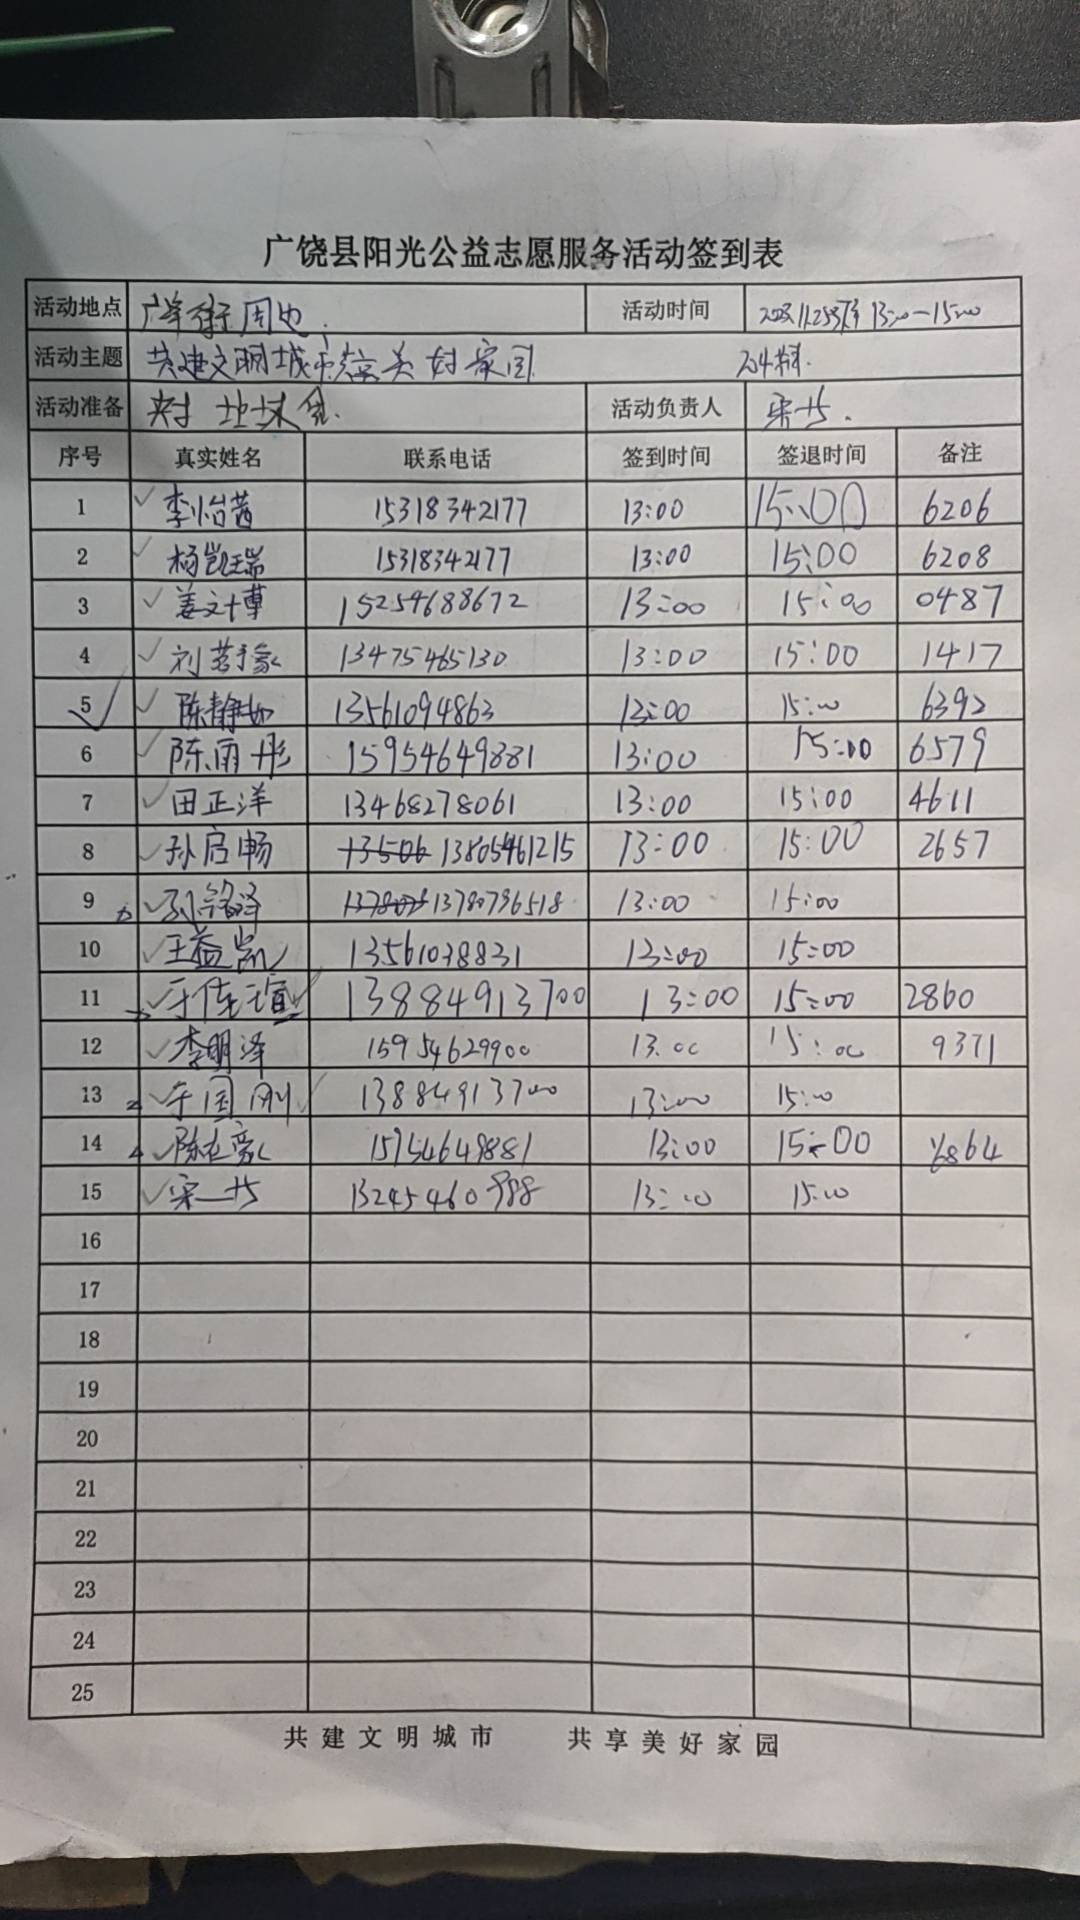 广饶县阳光公益志愿服务活动签到表
活动地点 周边 活动时间 13:00—15:00
活动主题 共建文明城市共享美好家园
活动准备 活动负责人
序号 真实姓名 联系电话 签到时间 签退时间 备注
1 李怡茜 15318342177 13:00 15:00 6206
2 杨凯瑞 15318342177 13:00 15:00 6208
3 姜文博 15254688672 13:00 15:00 0487
4 刘若豪 13475465130 13:00 15:00 1417
5 陈静如 13561094863 13:00 15:00 6392
6 陈雨彤 15954649881 13:00 15:00 6579
7 田正洋 13468278061 13:00 15:00 4611
8 孙启畅 13506 13805461215 13:00 15:00 2657
9 13780796518 13:00 15:00
10 王益凯 13561038831 13:00 15:00
11 于佳谊 13884913700 13:00 15:00 2860
12 李明泽 15954629900 13:00 15:00 9371
13 于国刚 13884913700 13:00 15:00
14 15954649881 13:00 15:00 6864
15 13245460988 13:00 15:00
16
17
18
19
20
21
22
23
24
25
共建文明城市 共享美好家园